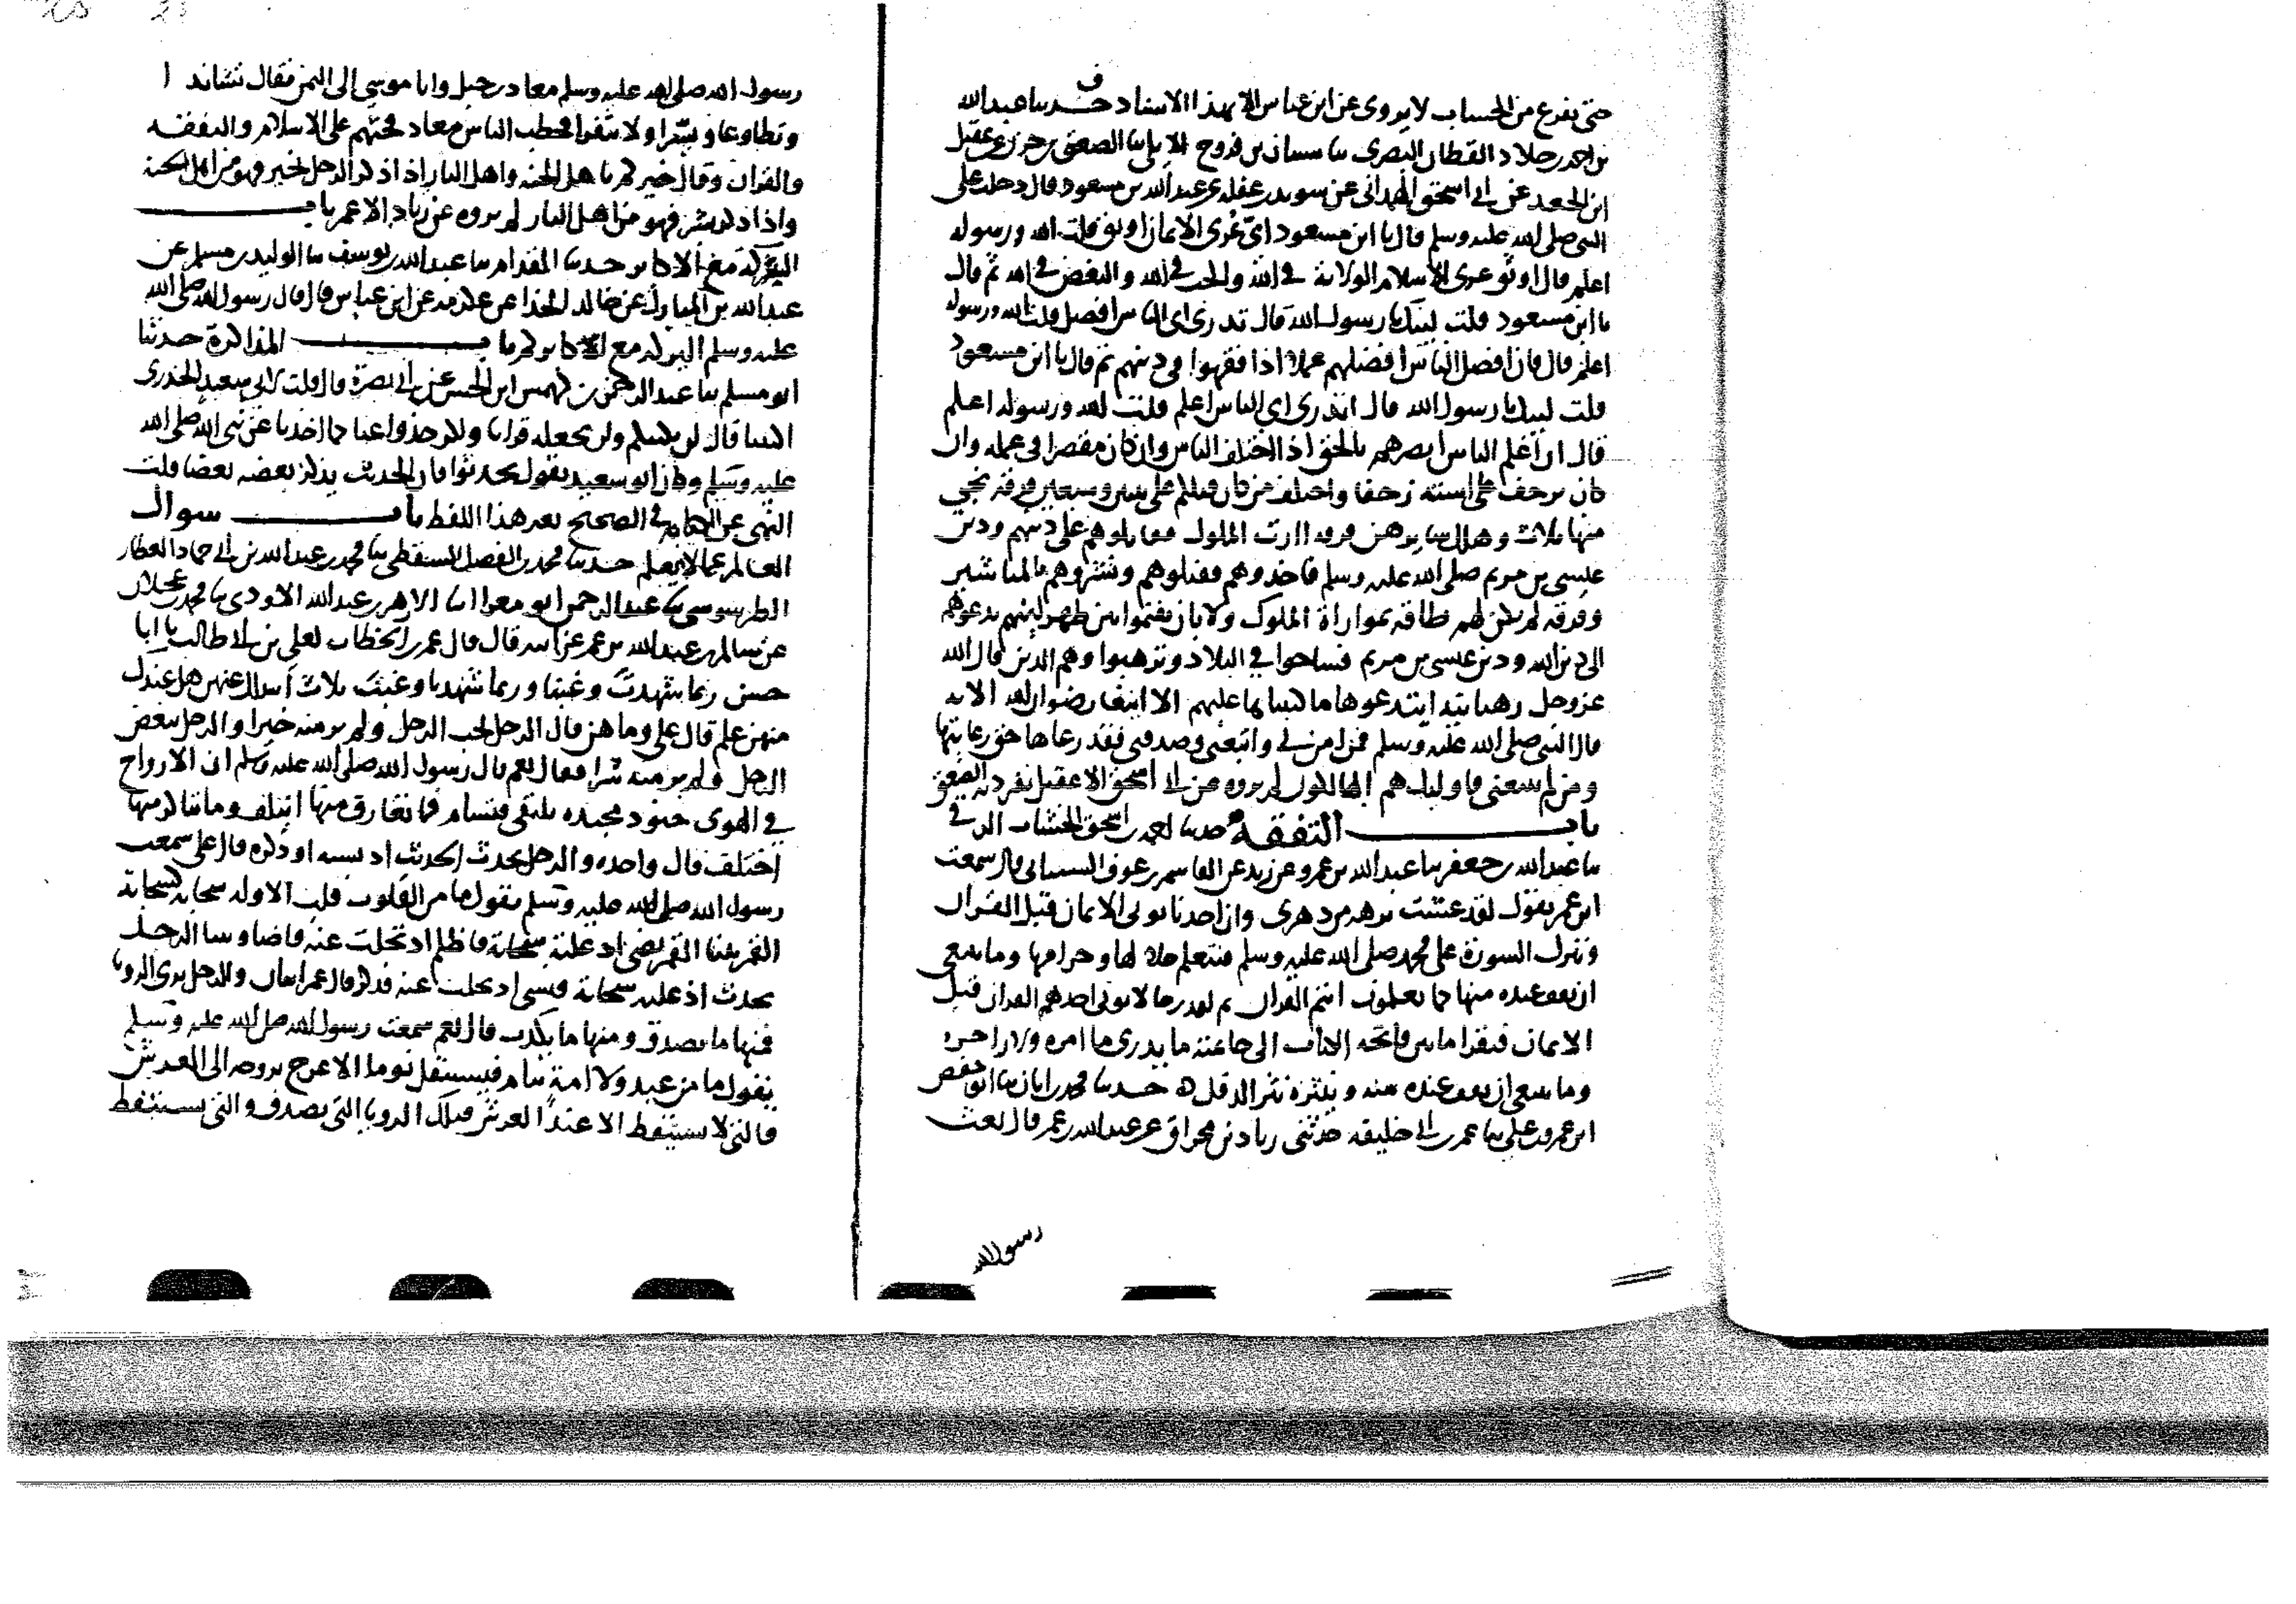 حتى يفرغ من الحساب لا يروى عن ابن عباس الا بهذا الاسناد حدثنا عبدالله
بن احمد بن خلاد القطان البصرى ثنا شيبان بن فروخ الايلى ثنا الصعق بن حزن عن عقيل
ابن الجعد عن ابى اسحق الهمدانى عن سويد بن غفله عن عبدالله بن مسعود قال دخلت على
النبى صلى الله عليه وسلم فقال يا ابن مسعود اى عرى الايمان اوثق قلت الله ورسوله
اعلم قال اوثق عرى الاسلام الولاية فى الله والحب فى الله والبغض فى الله ثم قال
يا ابن مسعود قلت لبيك يا رسول الله قال تدرى اى الناس افضل قلت الله ورسوله
اعلم قال فان افضل الناس افضلهم عملا اذا فقهوا فى دينهم ثم قال يا ابن مسعود
قلت لبيك يا رسول الله قال اتدرى اى الناس اعلم قلت الله ورسوله اعلم
قال ان اعلم الناس ابصرهم بالحق اذا اختلف الناس وان كان مقصرا فى عمله وان
كان يزحف على استه زحفا واختلف من كان قبلكم على ثنتين وسبعين فرقة نجى
منها ثلاث وهلك سايرهن فرقه ازت الملوك وقاتلوهم على دينهم ودين
عيسى بن مريم صلى الله عليه وسلم فاخذوهم وقتلوهم ونشروهم بالمناشير
وفرقه لم يكن لهم طاقه بموازاة الملوك ولا بان يقيموا بين ظهرانيهم يدعوهم
الى دين الله ودين عيسى بن مريم فساحوا فى البلاد وترهبوا وهم الذين قال الله
عز وجل رهبانية ابتدعوها ما كتبناها عليهم الا ابتغا رضوان الله الايه
قال النبى صلى الله عليه وسلم فمن امن بى واتبعنى وصدقنى فقد رعاها حق رعايتها
ومن لم يتبعنى فاوليك هم الهالكون لم يروه عن ابى اسحق الا عقيل تفرد به الصعق
باب التفقه حدثنا احمد بن اسحق الخشاب الرقى
ثنا عبدالله بن جعفر ثنا عبيدالله بن عمرو عن زيد عن القاسم بن عوف الشيبانى قال سمعت
ابن عمر يقول لقد عشت برهه من دهرى وان احدنا يوتى الايمان قبل القران
وتنزل السورة على محمد صلى الله عليه وسلم فنتعلم حلالها وحرامها وما ينبغى
ان يقف عنده منها كما تعلمون انتم القران ثم لقد رجالا يوتى احدهم القران قبل
الايمان فيقرا ما بين فاتحة الكتاب الى خاتمته ما يدرى ما امره ولا زاجره
وما ينبغى ان يقف عنده منه وينثره نثر الدقل حدثنا محمد بن ابان ثنا ابو حفص
ابن عمرو بن على ثنا عمر بن ابى خليفه حدثنى زياد بن مخراق عن عبدالله بن عمر قال بعث
رسول الله
رسول الله صلى الله عليه وسلم معاذ بن جبل وابا موسى الى اليمن فقال تساندا
وتطاوعا ويسرا ولا تنفرا فخطب الناس معاذ فحثهم على الاسلام والتفقه
والقران وقال اخبركم باهل الجنه واهل النار اذا ذكر الرجل بخير فهو من اهل الجنه
واذا ذكر بشر فهو من اهل النار لم يروه عن زياد الا عمر باب
البركة مع الاكابر حدثنا المقدام ثنا عبدالله بن يوسف ثنا الوليد بن مسلم عن
عبدالله بن المبارك عن خالد الحذا عن عكرمه عن ابن عباس قال قال رسول الله صلى الله
عليه وسلم البركه مع الاكابر باب المذاكرة حدثنا
ابو مسلم ثنا عبدالرحمن بن كهمس ابن الحسن عن ابى نضرة قال قلت لابى سعيد الخدرى
اكتبنا قال لن نكتبكم ولن نجعله قرانا ولكن خذوا عنا كما اخذنا عن نبى الله صلى الله
عليه وسلم وكان ابو سعيد يقول تحدثوا فان الحديث يذكر بعضه بعضا قلت
النهى عن الكتابه فى الصحيح بغير هذا اللفظ باب سوال
العالم عما لا يعلم حدثنا محمد بن الفضل السقطى ثنا محمد بن عبدالله بن ابى حماد العطار
الطرسوسى ثنا عبدالرحمن ابو معرا انا الازهر بن عبدالله الاودى ثنا محمد بن عجلان
عن سالم بن عبدالله بن عمر عن ابيه قال قال عمر بن الخطاب لعلى بن ابى طالب يا ابا
حسن ربما شهدت وغبنا وربما شهدنا وغبت ثلاث اسالك عنهن هل عندك
منهن علم قال على وما هن قال الرجل يحب الرجل ولم ير منه خيرا والرجل يبغض
الرجل ولم ير منه شرا فقال نعم قال رسول الله صلى الله عليه وسلم ان الارواح
فى الهوى جنود مجنده تلتقى فتشام فما تعارف منها ايتلف وما تناكر منها
اختلف قال واحده والرجل يحدث الحديث اذ نسيه اذ ذكره قال على سمعت
رسول الله صلى الله عليه وسلم يقول ما من القلوب قلب الا وله سحابه كسحابة
القمر بينا القمر يضى اذ علته سحابة فاظلم اذ تجلت عنه فاضا وبينا الرجل
يحدث اذ علته سحابه فنسى اذ تجلت عنه فذكر قال عمر اثنتان والرجل يرى الرويا
فمنها ما يصدق ومنها ما يكذب قال نعم سمعت رسول الله صلى الله عليه وسلم
يقول ما من عبد ولا امة ينام فيستثقل نوما الا عرج بروحه الى العرش
فالتى لا تستيقظ الا عند العرش فتلك الرويا التى تصدق والتى تستيقظ